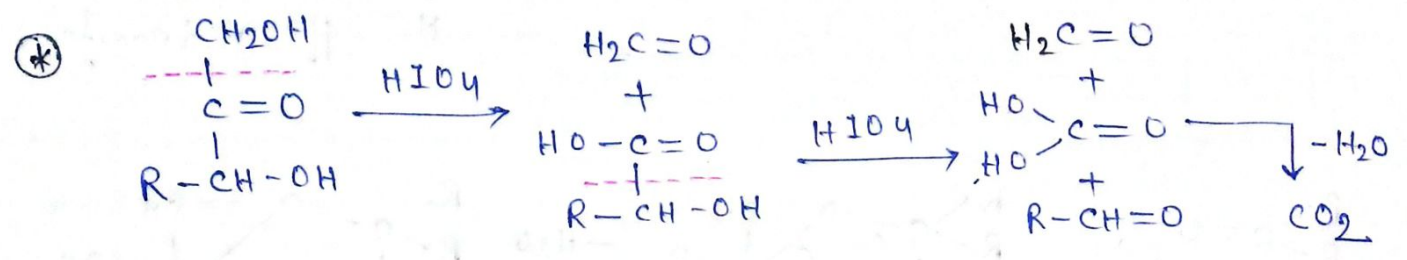 * CH2OH
C=O
R-CH-OH
HIO4
H2C=O
+
HO-C=O
R-CH-OH
HIO4
H2C=O
+
HO
HO
C=O
+
R-CH=O
-H2O
CO2